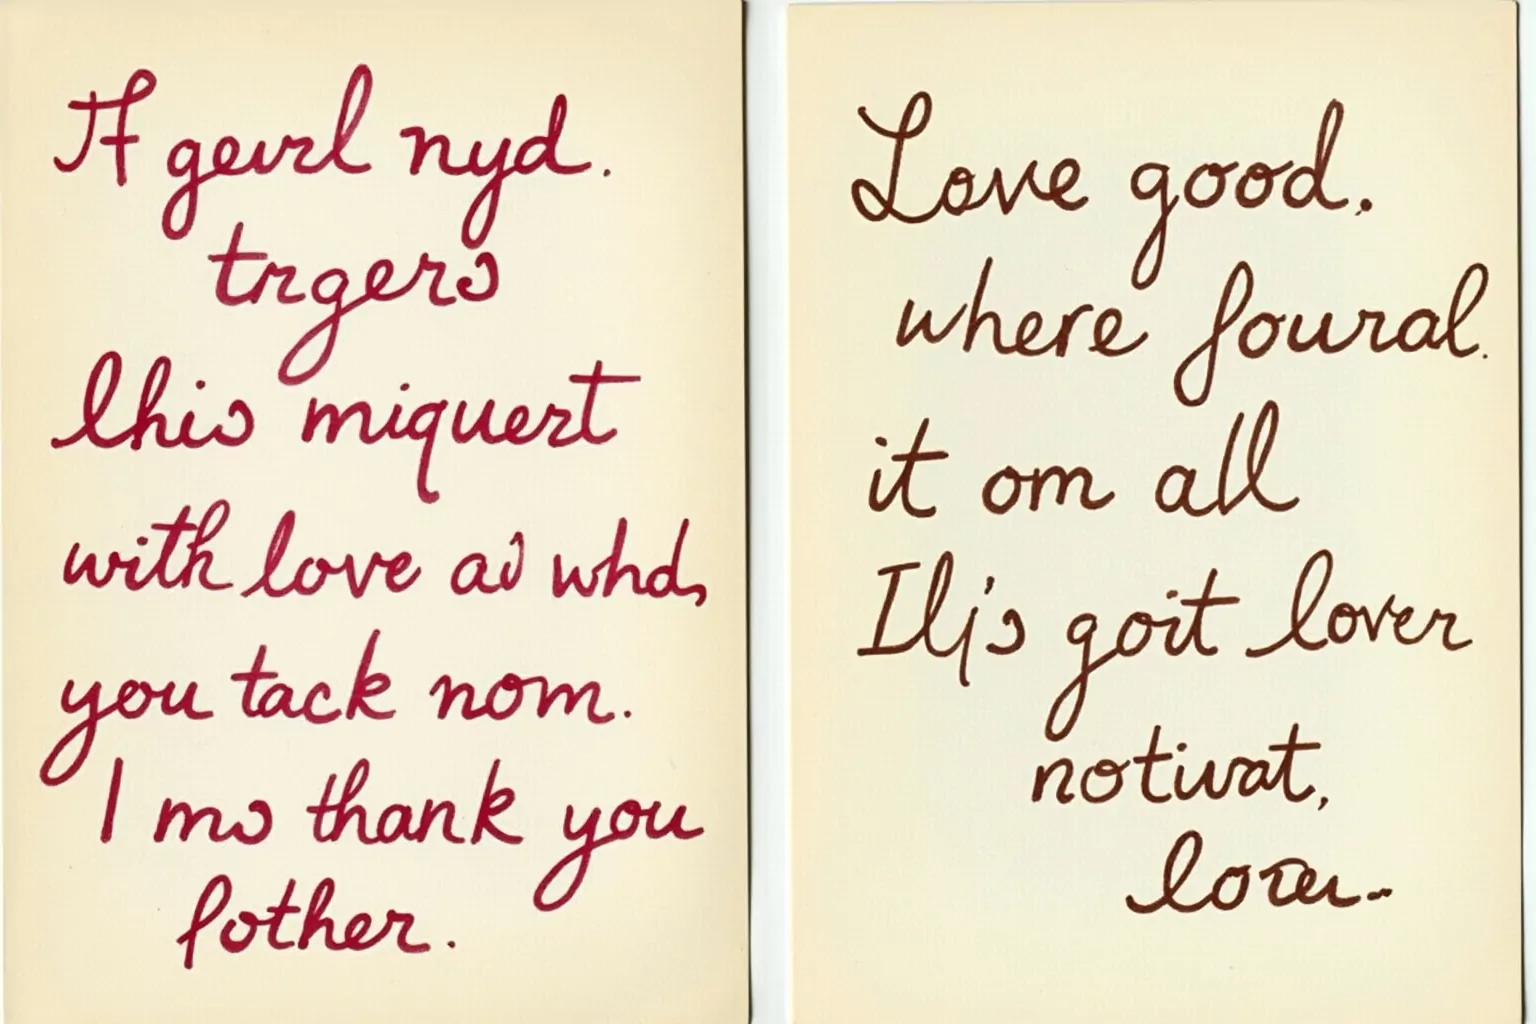 If gewrl nyd.
trgers
lhis miquert
with love as whd,
you tack nom.
I ms thank you
fother.
Love good.
where foural.
it om all
Ilj's goit lover
notivat,